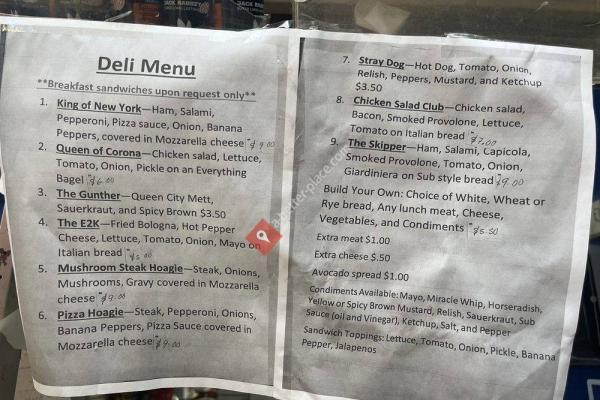 Deli Menu
**Breakfast sandwiches upon request only**
1. King of New York—Ham, Salami,
Pepperoni, Pizza sauce, Onion, Banana
Peppers, covered in Mozzarella cheese $9.00
2. Queen of Corona—Chicken salad, Lettuce,
Tomato, Onion, Pickle on an Everything
Bagel $6.00
3. The Gunther—Queen City Mett,
Sauerkraut, and Spicy Brown $3.50
4. The E2K—Fried Bologna, Hot Pepper
Cheese, Lettuce, Tomato, Onion, Mayo on
Italian bread $5.00
5. Mushroom Steak Hoagie—Steak, Onions,
Mushrooms, Gravy covered in Mozzarella
cheese $9.00
6. Pizza Hoagie—Steak, Pepperoni, Onions,
Banana Peppers, Pizza Sauce covered in
Mozzarella cheese $9.00
7. Stray Dog—Hot Dog, Tomato, Onion,
Relish, Peppers, Mustard, and Ketchup
$3.50
8. Chicken Salad Club—Chicken salad,
Bacon, Smoked Provolone, Lettuce,
Tomato on Italian bread $7.00
9. The Skipper—Ham, Salami, Capicola,
Smoked Provolone, Tomato, Onion,
Giardiniera on Sub style bread $9.00
Build Your Own: Choice of White, Wheat or
Rye bread, Any lunch meat, Cheese,
Vegetables, and Condiments $5.50
Extra meat $1.00
Extra cheese $.50
Avocado spread $1.00
Condiments Available: Mayo, Miracle Whip, Horseradish,
Yellow or Spicy Brown Mustard, Relish, Sauerkraut, Sub
Sauce (oil and Vinegar), Ketchup, Salt, and Pepper
Sandwich Toppings: Lettuce, Tomato, Onion, Pickle, Banana
Pepper, Jalapenos